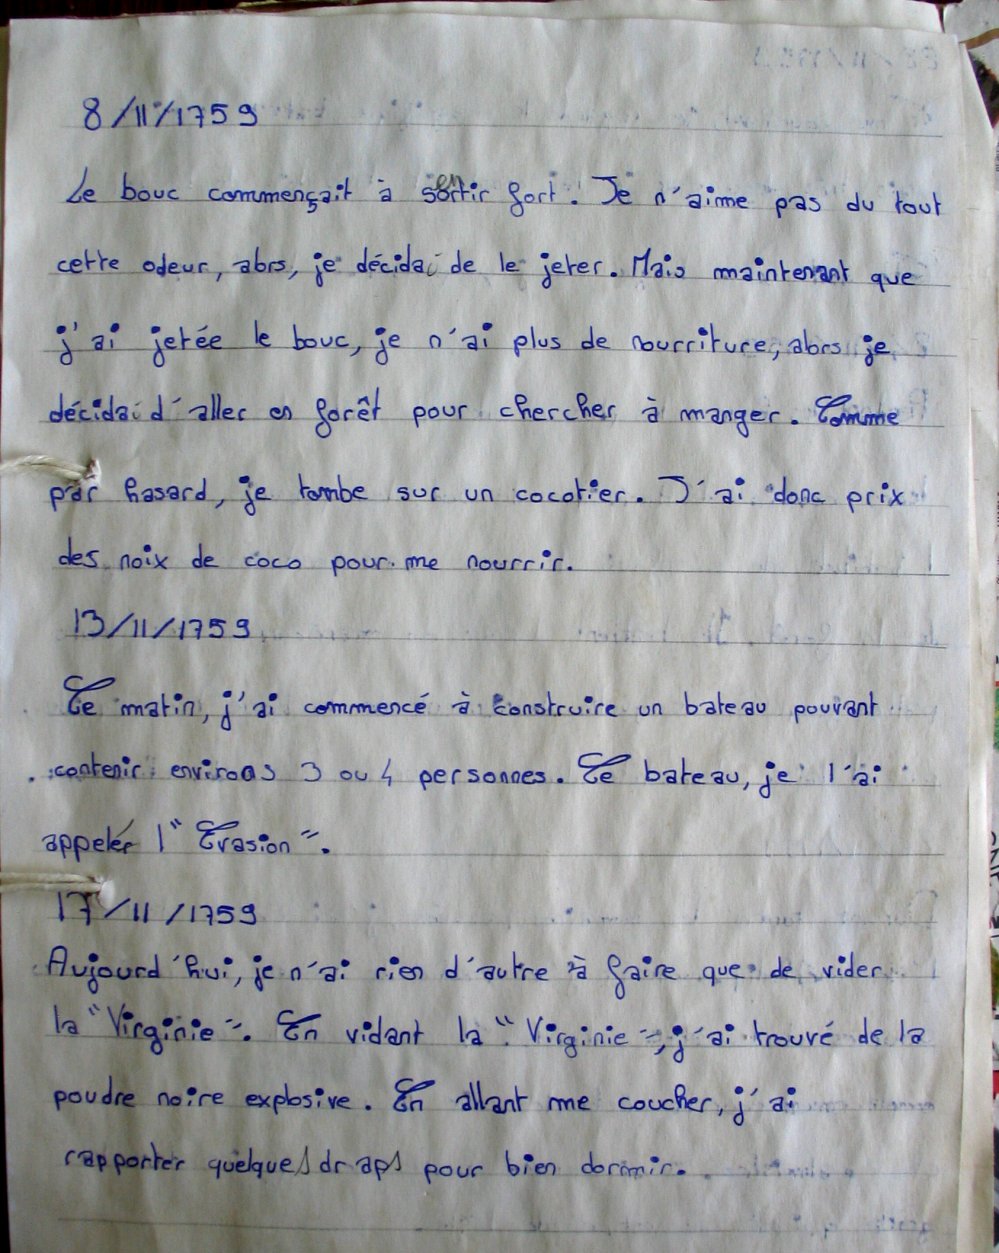 8/11/1759
Le bouc commençait à sentir fort. Je n'aime pas du tout
cette odeur, alors, je décidai de le jeter. Mais maintenant que
j'ai jetée le bouc, je n'ai plus de nourriture, alors je
décidai d'aller en forêt pour chercher à manger. Comme
par hasard, je tombe sur un cocotier. J'ai donc prix
des noix de coco pour me nourrir.
13/11/1759
Ce matin, j'ai commencé à construire un bateau pouvant
contenir environs 3 ou 4 personnes. Ce bateau, je l'ai
appelér l'"Evasion".
17/11/1759
Aujourd'hui, je n'ai rien d'autre à faire que de vider
la "Virginie". En vidant la "Virginie", j'ai trouvé de la
poudre noire explosive. En allant me coucher, j'ai
rapporter quelques draps pour bien dormir.